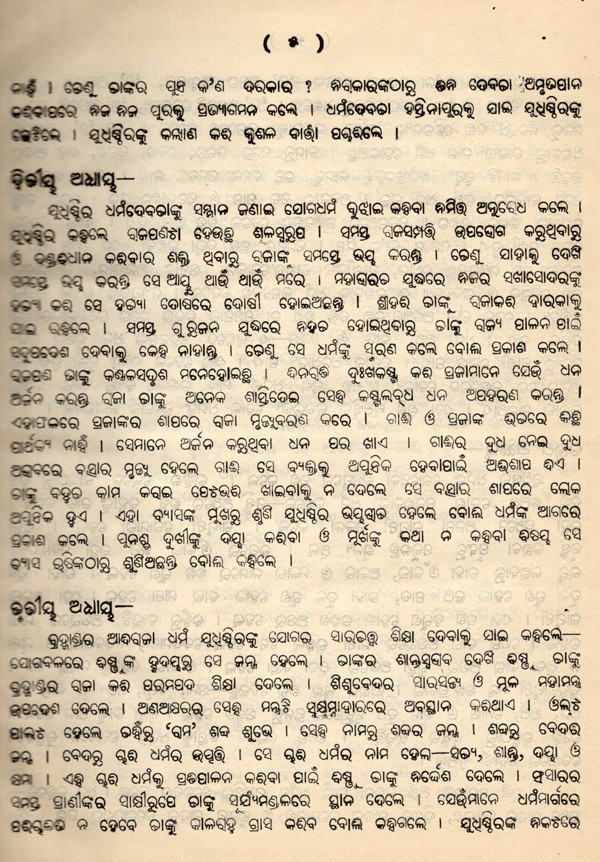 ( ୫ )
ନାହିଁ । ତେଣୁ ତାଙ୍କର ପୁତ୍ର କ'ଣ ଦରକାର ? ନିରାକାରଙ୍କଠାରୁ ତିନି ଦେବତା ଅମୃତପାନ
କରିବାପରେ ନିଜ ନିଜ ପୁରକୁ ପ୍ରତ୍ୟାଗମନ କଲେ । ଧର୍ମଦେବତା ହସ୍ତିନାପୁରକୁ ଯାଇ ଯୁଧିଷ୍ଠିରଙ୍କୁ
ଭେଟିଲେ । ଯୁଧିଷ୍ଠିରଙ୍କୁ କଲ୍ୟାଣ କରି କୁଶଳ ବାର୍ତ୍ତା ପଚାରିଲେ ।
ଦ୍ୱିତୀୟ ଅଧ୍ୟାୟ—
ଯୁଧିଷ୍ଠିର ଧର୍ମଦେବତାଙ୍କୁ ସମ୍ମାନ ଜଣାଇ ଯୋଗଧର୍ମ ବୁଝାଇ କହିବା ନିମିତ୍ତ ଅନୁରୋଧ କଲେ ।
ଯୁଧିଷ୍ଠିର କହିଲେ ରାଜପଣଟା ହେଉଛି ଶୂଳସ୍ୱରୂପ । ସମସ୍ତ ରାଜସମ୍ପତ୍ତି ଉପଭୋଗ କରୁଥିବାରୁ
ଓ ଦଣ୍ଡବିଧାନ କରିବାର ଶକ୍ତି ଥିବାରୁ ରାଜାଙ୍କୁ ସମସ୍ତେ ଭୟ କରନ୍ତି । ତେଣୁ ଯାହାକୁ ଦେଖି
ସମସ୍ତେ ଭୟ କରନ୍ତି ସେ ଆୟୁ ଥାଉଁ ଥାଉଁ ମରେ । ମହାଭାରତ ଯୁଦ୍ଧରେ ନିଜର ସଖାସୋଦରଙ୍କୁ
ହତ୍ୟା କରି ସେ ହତ୍ୟା ଦୋଷରେ ଦୋଷୀ ହୋଇଅଛନ୍ତି । ଶ୍ରୀହରି ତାଙ୍କୁ ରାଜାକରି ଦ୍ୱାରକାକୁ
ଯାଇ ରହିଲେ । ସମସ୍ତ ଗୁରୁଜନ ଯୁଦ୍ଧରେ ନିହତ ହୋଇଥିବାରୁ ତାଙ୍କୁ ରାଜ୍ୟ ପାଳନ ପାଇଁ
ସଦୁପଦେଶ ଦେବାକୁ କେହି ନାହାନ୍ତି । ତେଣୁ ସେ ଧର୍ମଙ୍କୁ ସ୍ମରଣ କଲେ ବୋଲି ପ୍ରକାଶ କଲେ ।
ରାଜପଣ ତାଙ୍କୁ କଣ୍ଟକସଦୃଶ ମନେହୋଇଛି । ଦିନରାତି ଦୁଃଖକଷ୍ଟ କରି ପ୍ରଜାମାନେ ଯେଉଁ ଧନ
ଅର୍ଜନ କରନ୍ତି ରାଜା ତାଙ୍କୁ ଅନେକ ଶାସ୍ତିଦେଇ ସେହି କଷ୍ଟଲବ୍ଧ ଧନ ଅପହରଣ କରନ୍ତି ।
ଏହାଫଳରେ ପ୍ରଜାଙ୍କର ଶାପରେ ରାଜା ମୃତ୍ୟୁବରଣ କରେ । ଗାଈ ଓ ପ୍ରଜାଙ୍କ ଭିତରେ କିଛି
ପାର୍ଥକ୍ୟ ନାହିଁ । ସେମାନେ ଅର୍ଜନ କରୁଥିବା ଧନ ପର ଖାଏ । ଗାଈର ଦୁଧ ନେଇ ଦୁଧ
ଅଭାବରେ ବାଛୁରୀ ମୃତ୍ୟୁ ହେଲେ ଗାଈ ସେ ବ୍ୟକ୍ତିକୁ ଅପୁତ୍ରିକ ହେବାପାଇଁ ଅଭିଶାପ ଦିଏ ।
ତାଙ୍କୁ ବହୁତ କାମ କରାଇ ପେଟଭରି ଖାଇବାକୁ ନ ଦେଲେ ସେ ବାଛୁରୀ ଶାପରେ ଲୋକ
ଅପୁତ୍ରିକ ହୁଏ । ଏହା ବ୍ୟାସଙ୍କ ମୁଖରୁ ଶୁଣି ଯୁଧିଷ୍ଠିର ଭୟଭୀତ ହେଲେ ବୋଲି ଧର୍ମଙ୍କ ଆଗରେ
ପ୍ରକାଶ କଲେ । ପୁନଶ୍ଚ ଦୁଃଖୀଙ୍କୁ ଦୟା କରିବା ଓ ମୂର୍ଖଙ୍କୁ କଥା ନ କହିବା ବିଷୟ ସେ
ବ୍ୟାସ ଋଷିଙ୍କଠାରୁ ଶୁଣିଅଛନ୍ତି ବୋଲି କହିଲେ ।
ତୃତୀୟ ଅଧ୍ୟାୟ—
ବ୍ରହ୍ମାଣ୍ଡର ଆଦିରାଜା ଧର୍ମ ଯୁଧିଷ୍ଠିରଙ୍କୁ ଯୋଗର ସାରତତ୍ତ୍ୱ ଶିକ୍ଷା ଦେବାକୁ ଯାଇ କହିଲେ—
ଯୋଗବଳରେ ବିଷ୍ଣୁଙ୍କ ହୃଦୟରୁ ସେ ଜନ୍ମ ହେଲେ । ତାଙ୍କର ଶାନ୍ତସ୍ୱଭାବ ଦେଖି ବିଷ୍ଣୁ ତାଙ୍କୁ
ବ୍ରହ୍ମାଣ୍ଡର ରାଜା କରି ପରମପଦ ଶିକ୍ଷା ଦେଲେ । ଶିଶୁବେଦର ସାରସତ୍ୟ ଓ ମୂଳ ମହାମନ୍ତ୍ର
ଉପଦେଶ ଦେଲେ । ଅଣଅକ୍ଷରର ସେହି ମନ୍ତ୍ରଟି ସୁଷୁମ୍ନାଦ୍ୱାରରେ ଅବସ୍ଥାନ କରିଥାଏ । ଓଲଟି
ପାଲଟି ହେଲେ ତହିଁରୁ 'ରାମ' ଶବ୍ଦ ଶୁଭେ । ସେହି ନାମରୁ ଶବ୍ଦର ଜନ୍ମ । ଶବ୍ଦରୁ ବେଦର
ଜନ୍ମ । ବେଦରୁ ଚାରି ଧର୍ମର ଉତ୍ପତ୍ତି । ସେ ଚାରି ଧର୍ମର ନାମ ହେଲା—ସତ୍ୟ, ଶାନ୍ତି, ଦୟା ଓ
କ୍ଷମା । ଏହି ଚାରି ଧର୍ମକୁ ପ୍ରତିପାଳନ କରିବା ପାଇଁ ବିଷ୍ଣୁ ତାଙ୍କୁ ନିର୍ଦ୍ଦେଶ ଦେଲେ । ସଂସାରର
ସମସ୍ତ ପ୍ରାଣୀଙ୍କର ସାକ୍ଷୀରୂପେ ତାଙ୍କୁ ସୂର୍ଯ୍ୟମଣ୍ଡଳରେ ସ୍ଥାନ ଦେଲେ । ଯେଉଁମାନେ ଧର୍ମମାର୍ଗରେ
ପରିଚାଳିତ ନ ହେବେ ତାଙ୍କୁ କାଳରାହୁ ଗ୍ରାସ କରିବ ବୋଲି କହିଗଲେ । ଯୁଧିଷ୍ଠିରଙ୍କ ନିକଟରେ